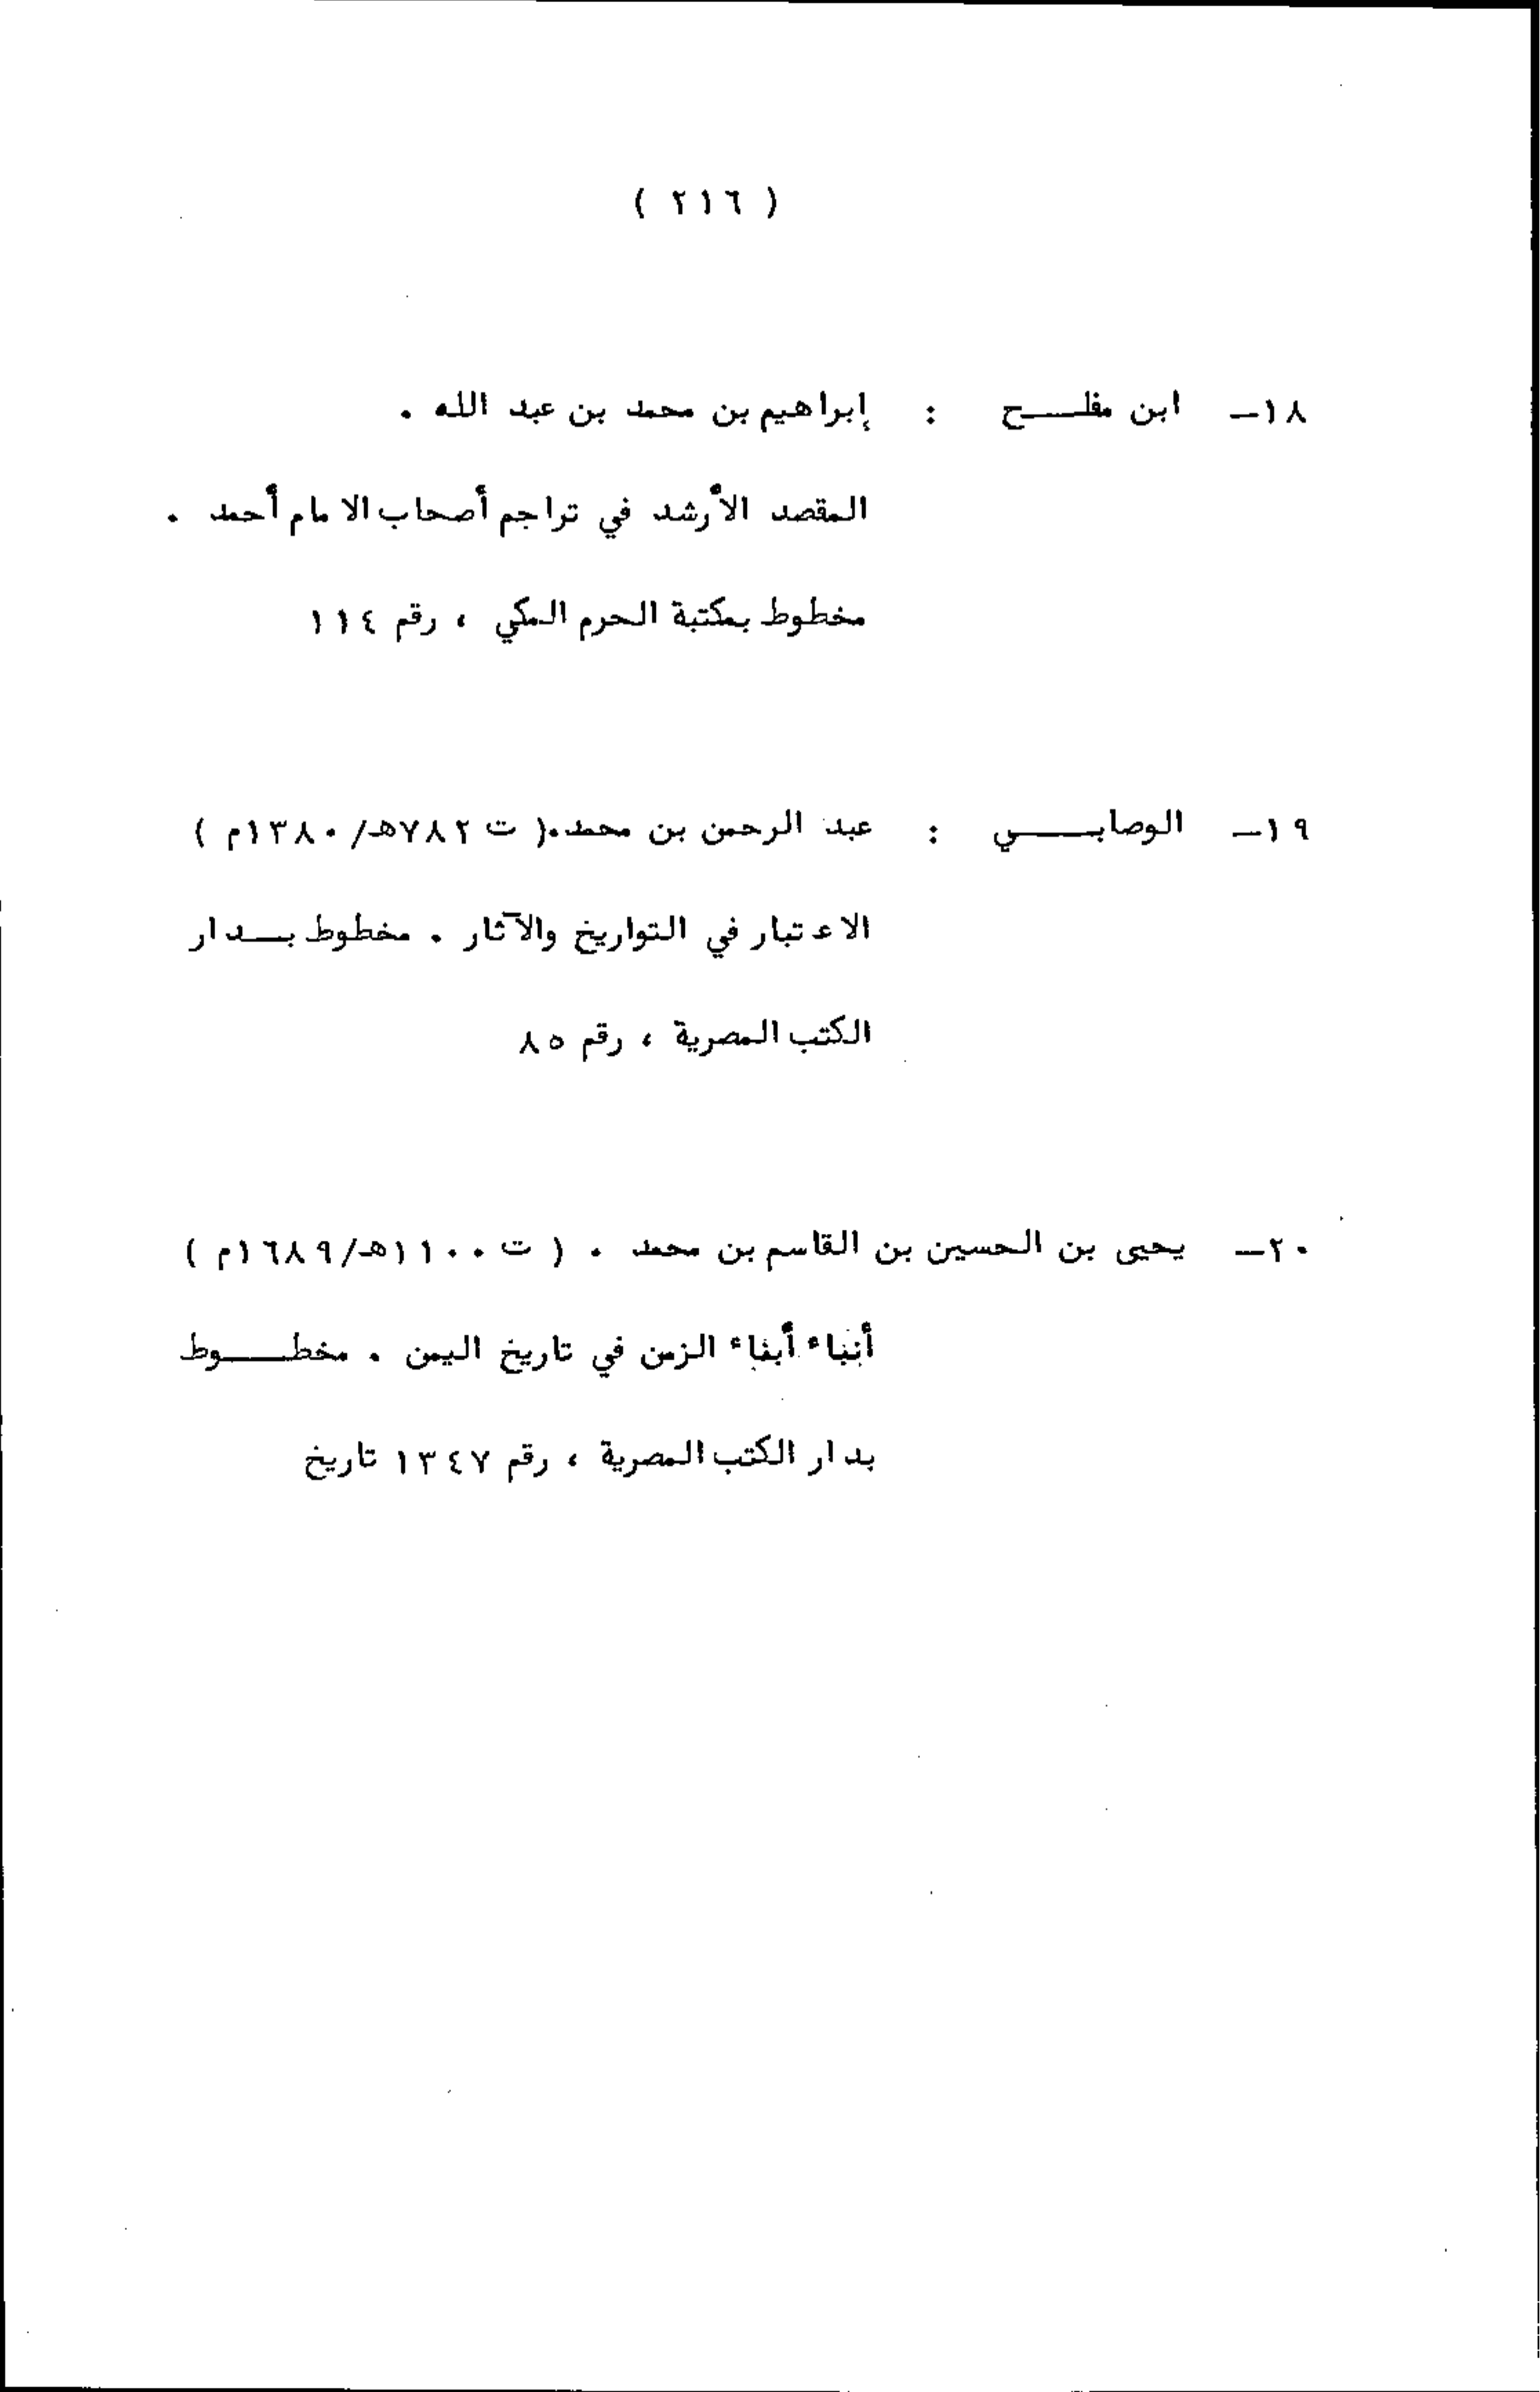 ( ٢١٦ )
١٨ـ ابن مفلـــح : إبراهيم بن محمد بن عبد الله .
المقصد الأرشد في تراجم أصحاب الامام أحمد .
مخطوط بمكتبة الحرم المكي ، رقم ١١٤
١٩ـ الوصابـــي : عبد الرحمن بن محمد.( ت ٧٨٢هـ/١٣٨٠م )
الاعتبار في التواريخ والآثار . مخطوط بـــدار
الكتب المصرية ، رقم ٨٥
٢٠ـ يحيى بن الحسين بن القاسم بن محمد . ( ت ١١٠٠هـ/١٦٨٩م )
أنباء أبناء الزمن في تاريخ اليمن . مخطـــوط
بدار الكتب المصرية ، رقم ١٣٤٧ تاريخ